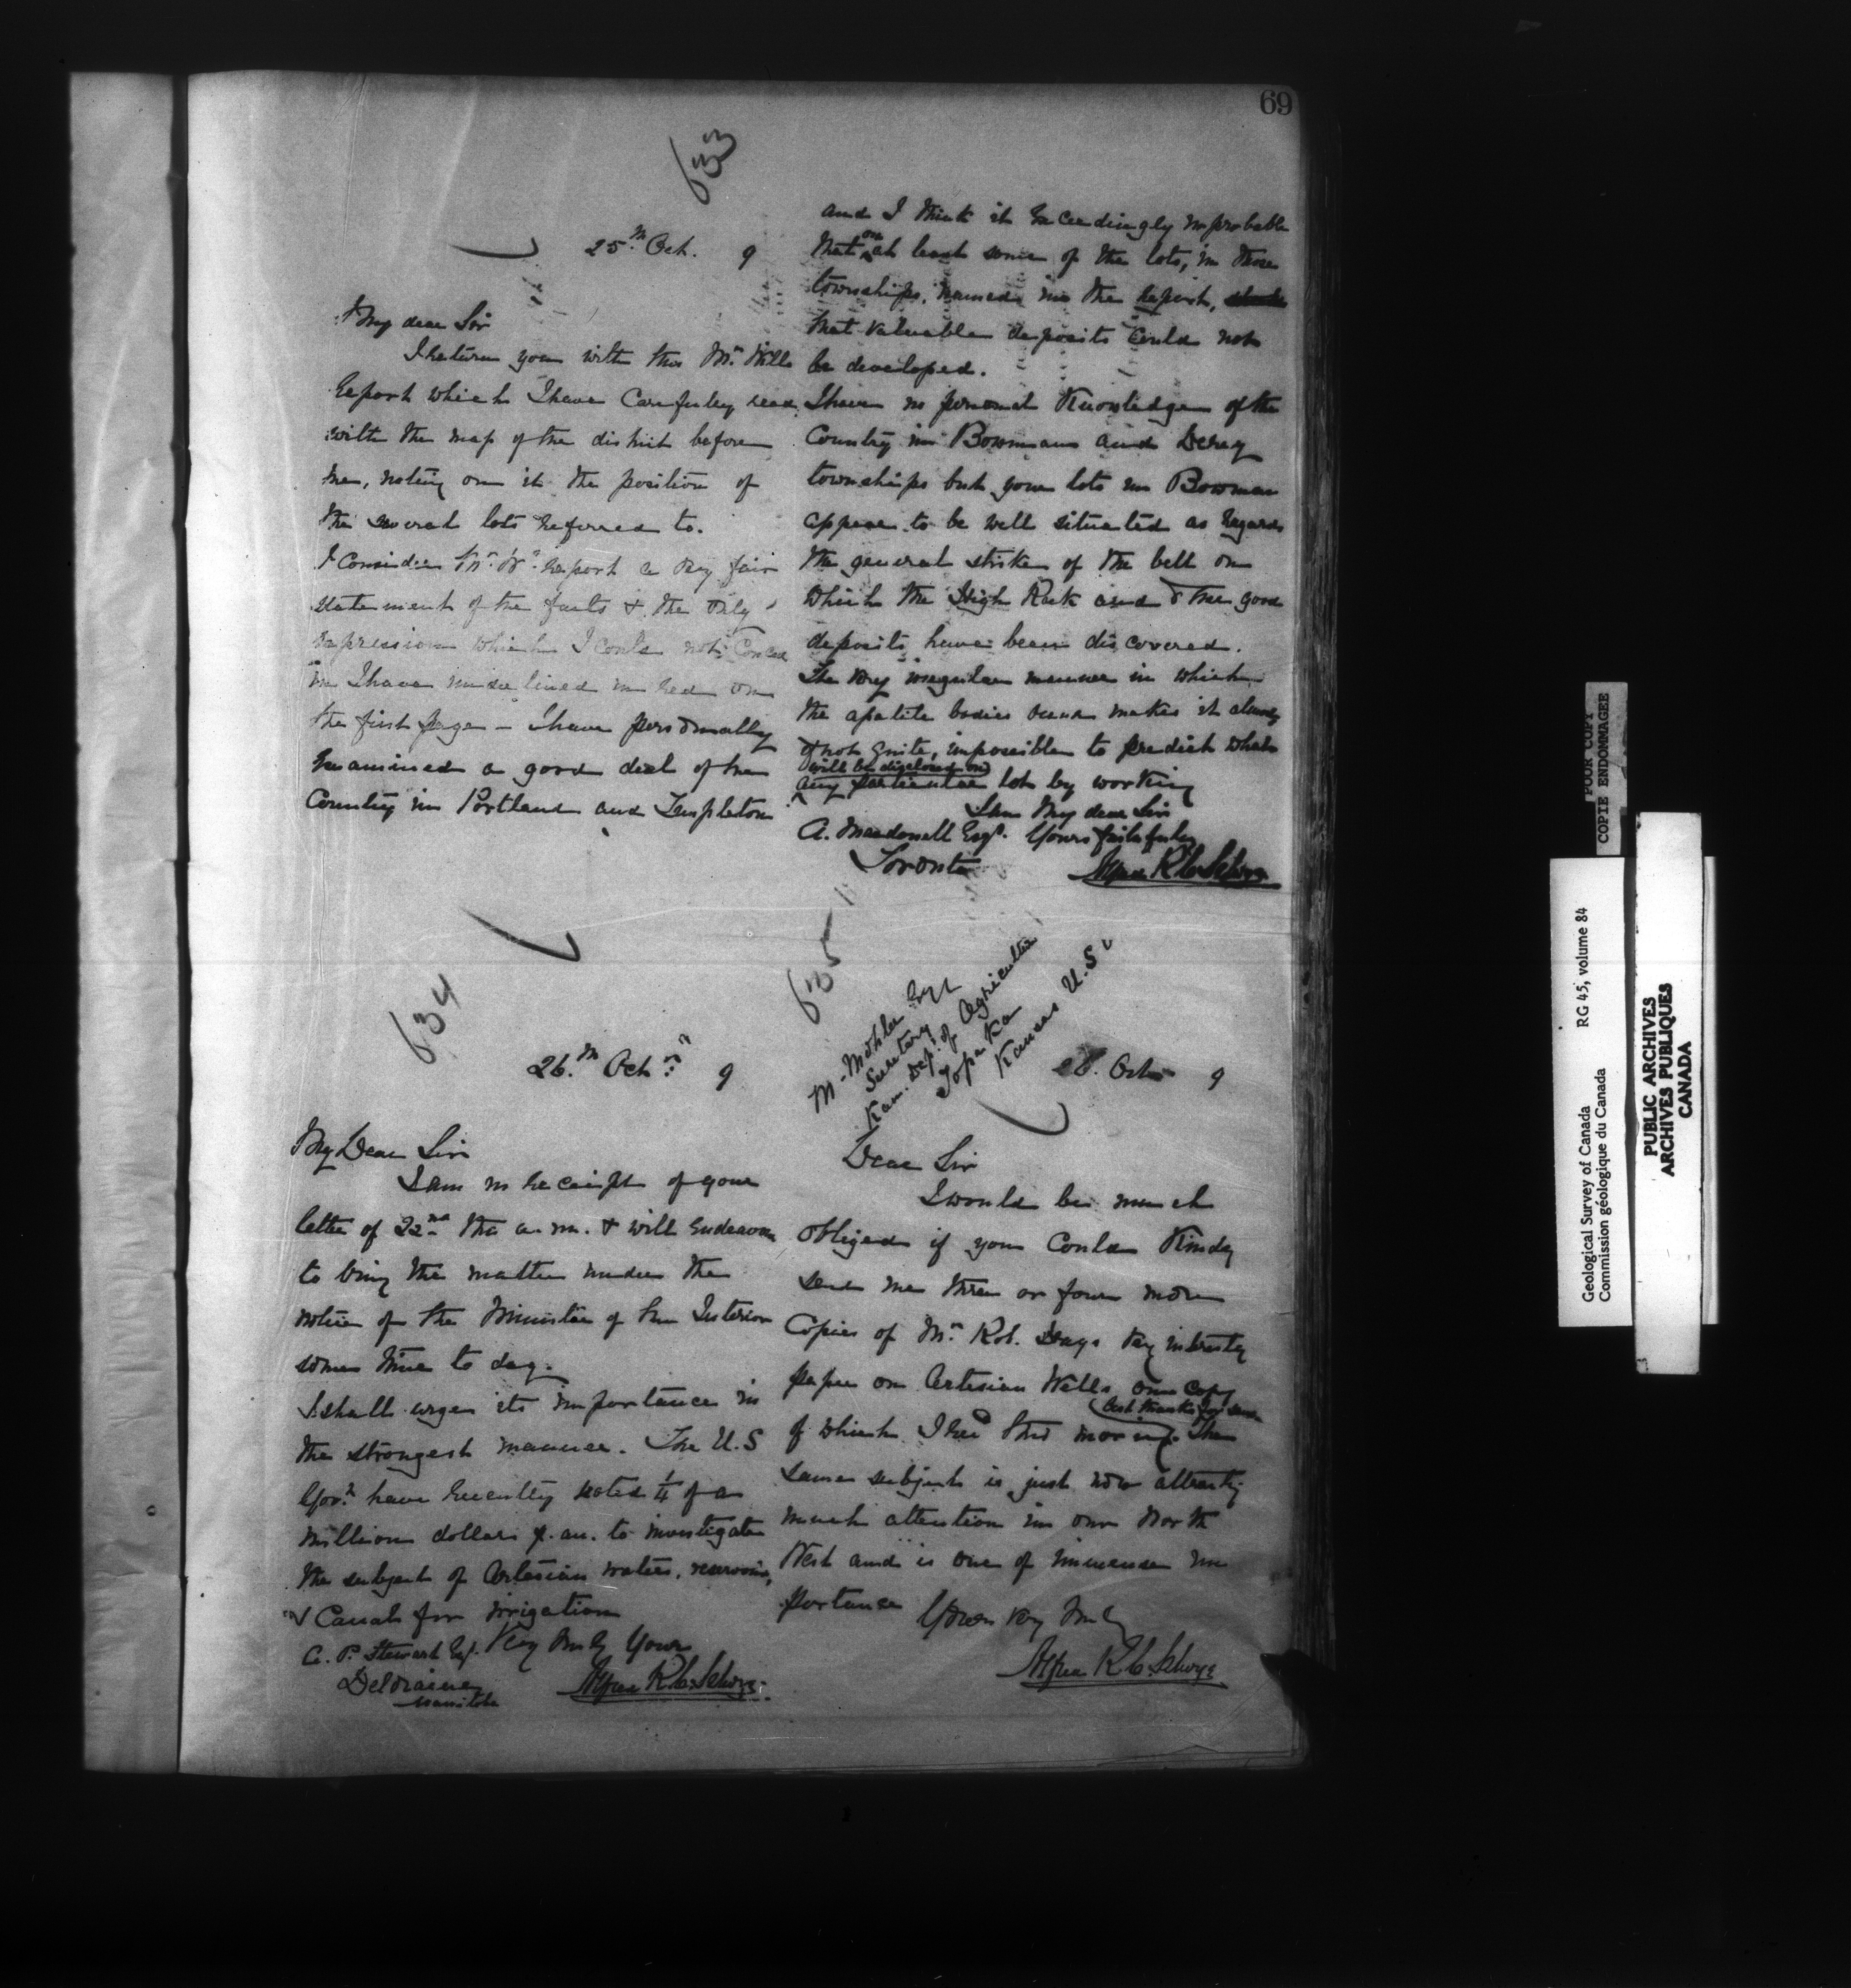 69
633
25.th Oct. 9
My dear Sir
I return you with this Mr. Wills
Report which I have carefuly read
with the map of the district before
me, noting on it the position of
the several lots referred to.
I consider Mr. W's report a very fair
statement of the facts & the only
expression which I could not concur
in I have underlined in red on
the first page - I have personally
examined a good deal of the
Country in Portland and Templeton
and I think it exceedingly improbable
that on at least some of the lots, in those
townships, named in the report,
that valuable deposits could not
be developed.
I have no personal Knowledge of the
Country in Bowman and Derry
townships but your lots in Bowman
appear to be well situated as regards
the general strike of the belt on
which the High Rock and other good
deposits have been discovered.
The very irregular manner in which
the apatite bodies occur makes it almost
if not quite, impossible to predict what
will be disclosed on
any particular lot by working
I am My dear Sir
A. Macdonell Esqr. Yours faithfuly
Toronto
Alfred R C Selwyn
634
26.th Oct. 9
My Dear Sir
I am in receipt of your
letter of 22nd the a.m. & will endeavour
to bring the matter under the
notice of the Minister of the Interior
some time to day.
I shall urge its importance in
the strongest manner. The U.S
Govt. have recently voted 1/4 of a
million dollars p. an. to investigate
the subject of Artesian waters, reservoirs,
& Canals for irrigation
Very truly Yours
A. P. Stewart Esq.
Deloraine
Manitoba
Alfred R. C. Selwyn
635
M. Mohler Esqr
Secretary
Kan. Dep. of Agriculture
Topeka
Kansas U.S.
26. Oct 9
Dear Sir
I would be much
obliged if you could Kindly
send me three or four more
Copies of Mr. Rob. Hays very interesting
paper on Artesian Wells, one copy
best thanks for same
of which I recd this morning. The
same subject is just now attracting
much attention in our North
West and is one of immense im
portance
Yours very truly
Alfred R. C. Selwyn
POOR COPY
COPIE ENDOMMAGEE
Geological Survey of Canada
Commission géologique du Canada
RG 45, volume 84
PUBLIC ARCHIVES
ARCHIVES PUBLIQUES
CANADA